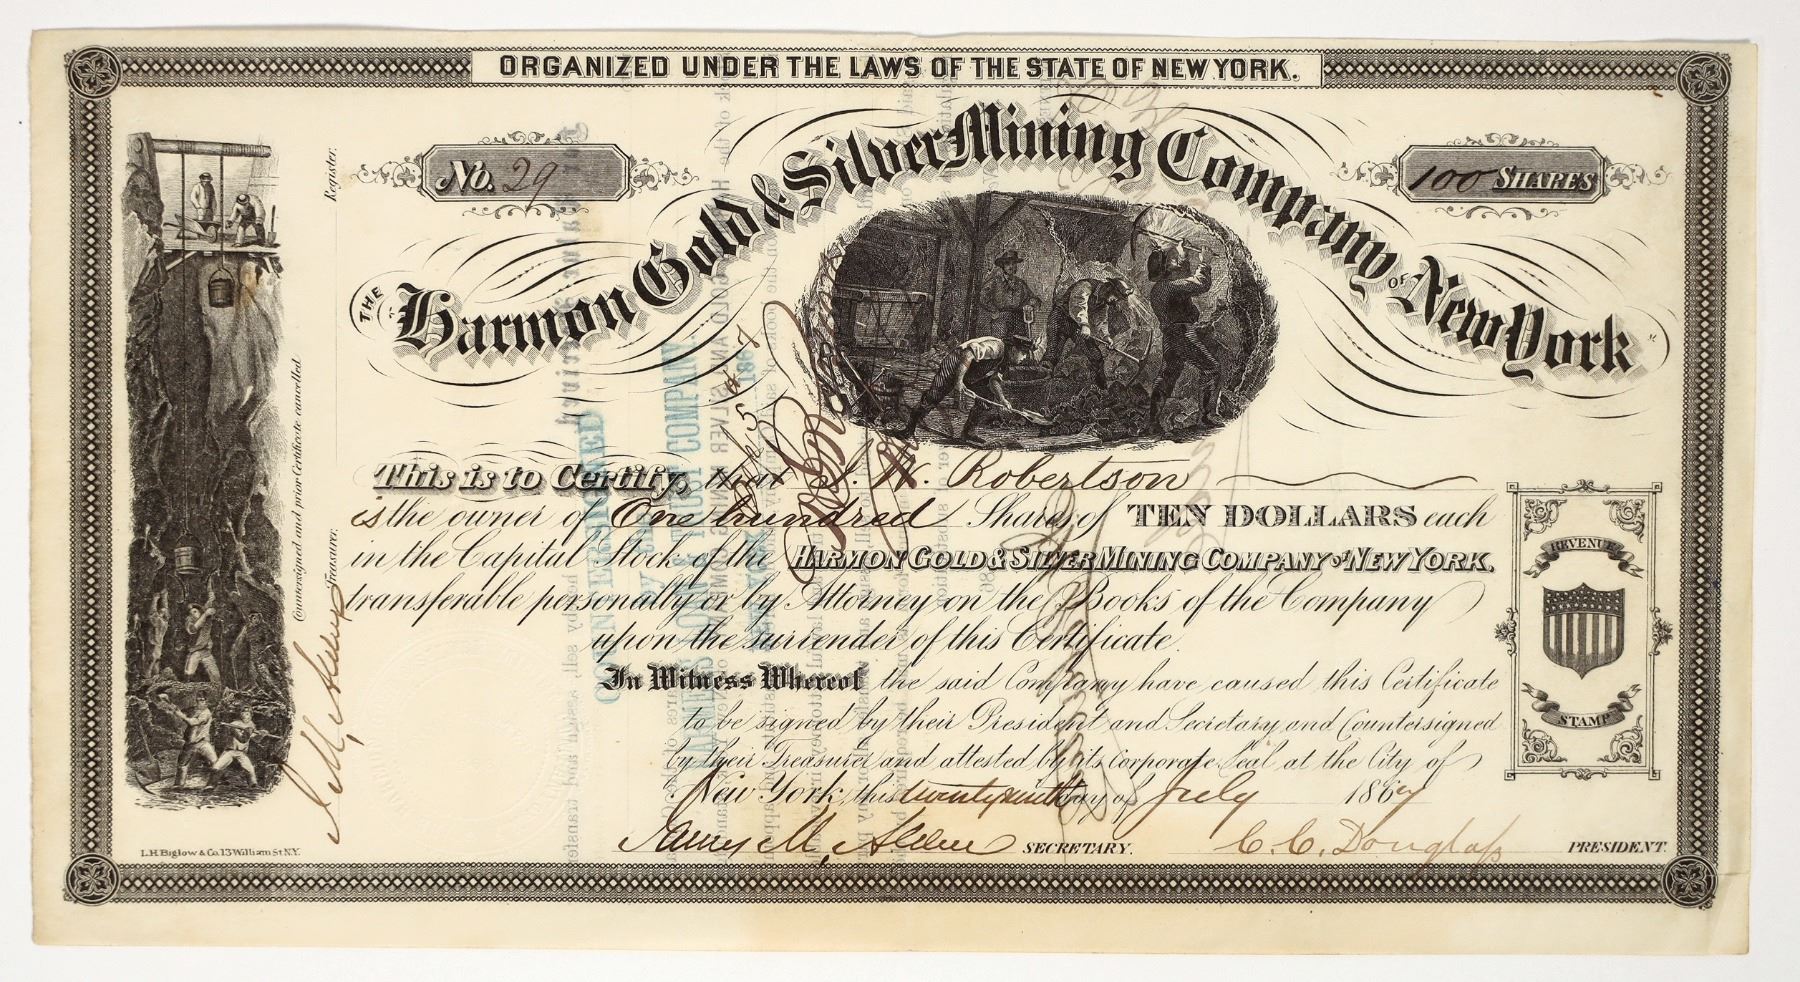 ORGANIZED UNDER THE LAWS OF THE STATE OF NEW YORK.
No. 29
100 SHARES
THE Harmon Gold & Silver Mining Company OF New York
Register.
Countersigned and prior Certificate cancelled
Treasurer.
This is to Certify, that J. W. Robertson
is the owner of One hundred Shares of TEN DOLLARS each
in the Capital Stock of the HARMON GOLD & SILVER MINING COMPANY OF NEW YORK.
transferable personally or by Attorney on the Books of the Company
upon the surrender of this Certificate.
In Witness Whereof the said Company have caused this Certificate
to be signed by their President and Secretary and Countersigned
by their Treasurer and attested by its Corporate Seal at the City of
New York, this day of July 186
SECRETARY. C. C. Douglass PRESIDENT.
REVENUE
STAMP
L.H. Biglow & Co. 13 William St N.Y.